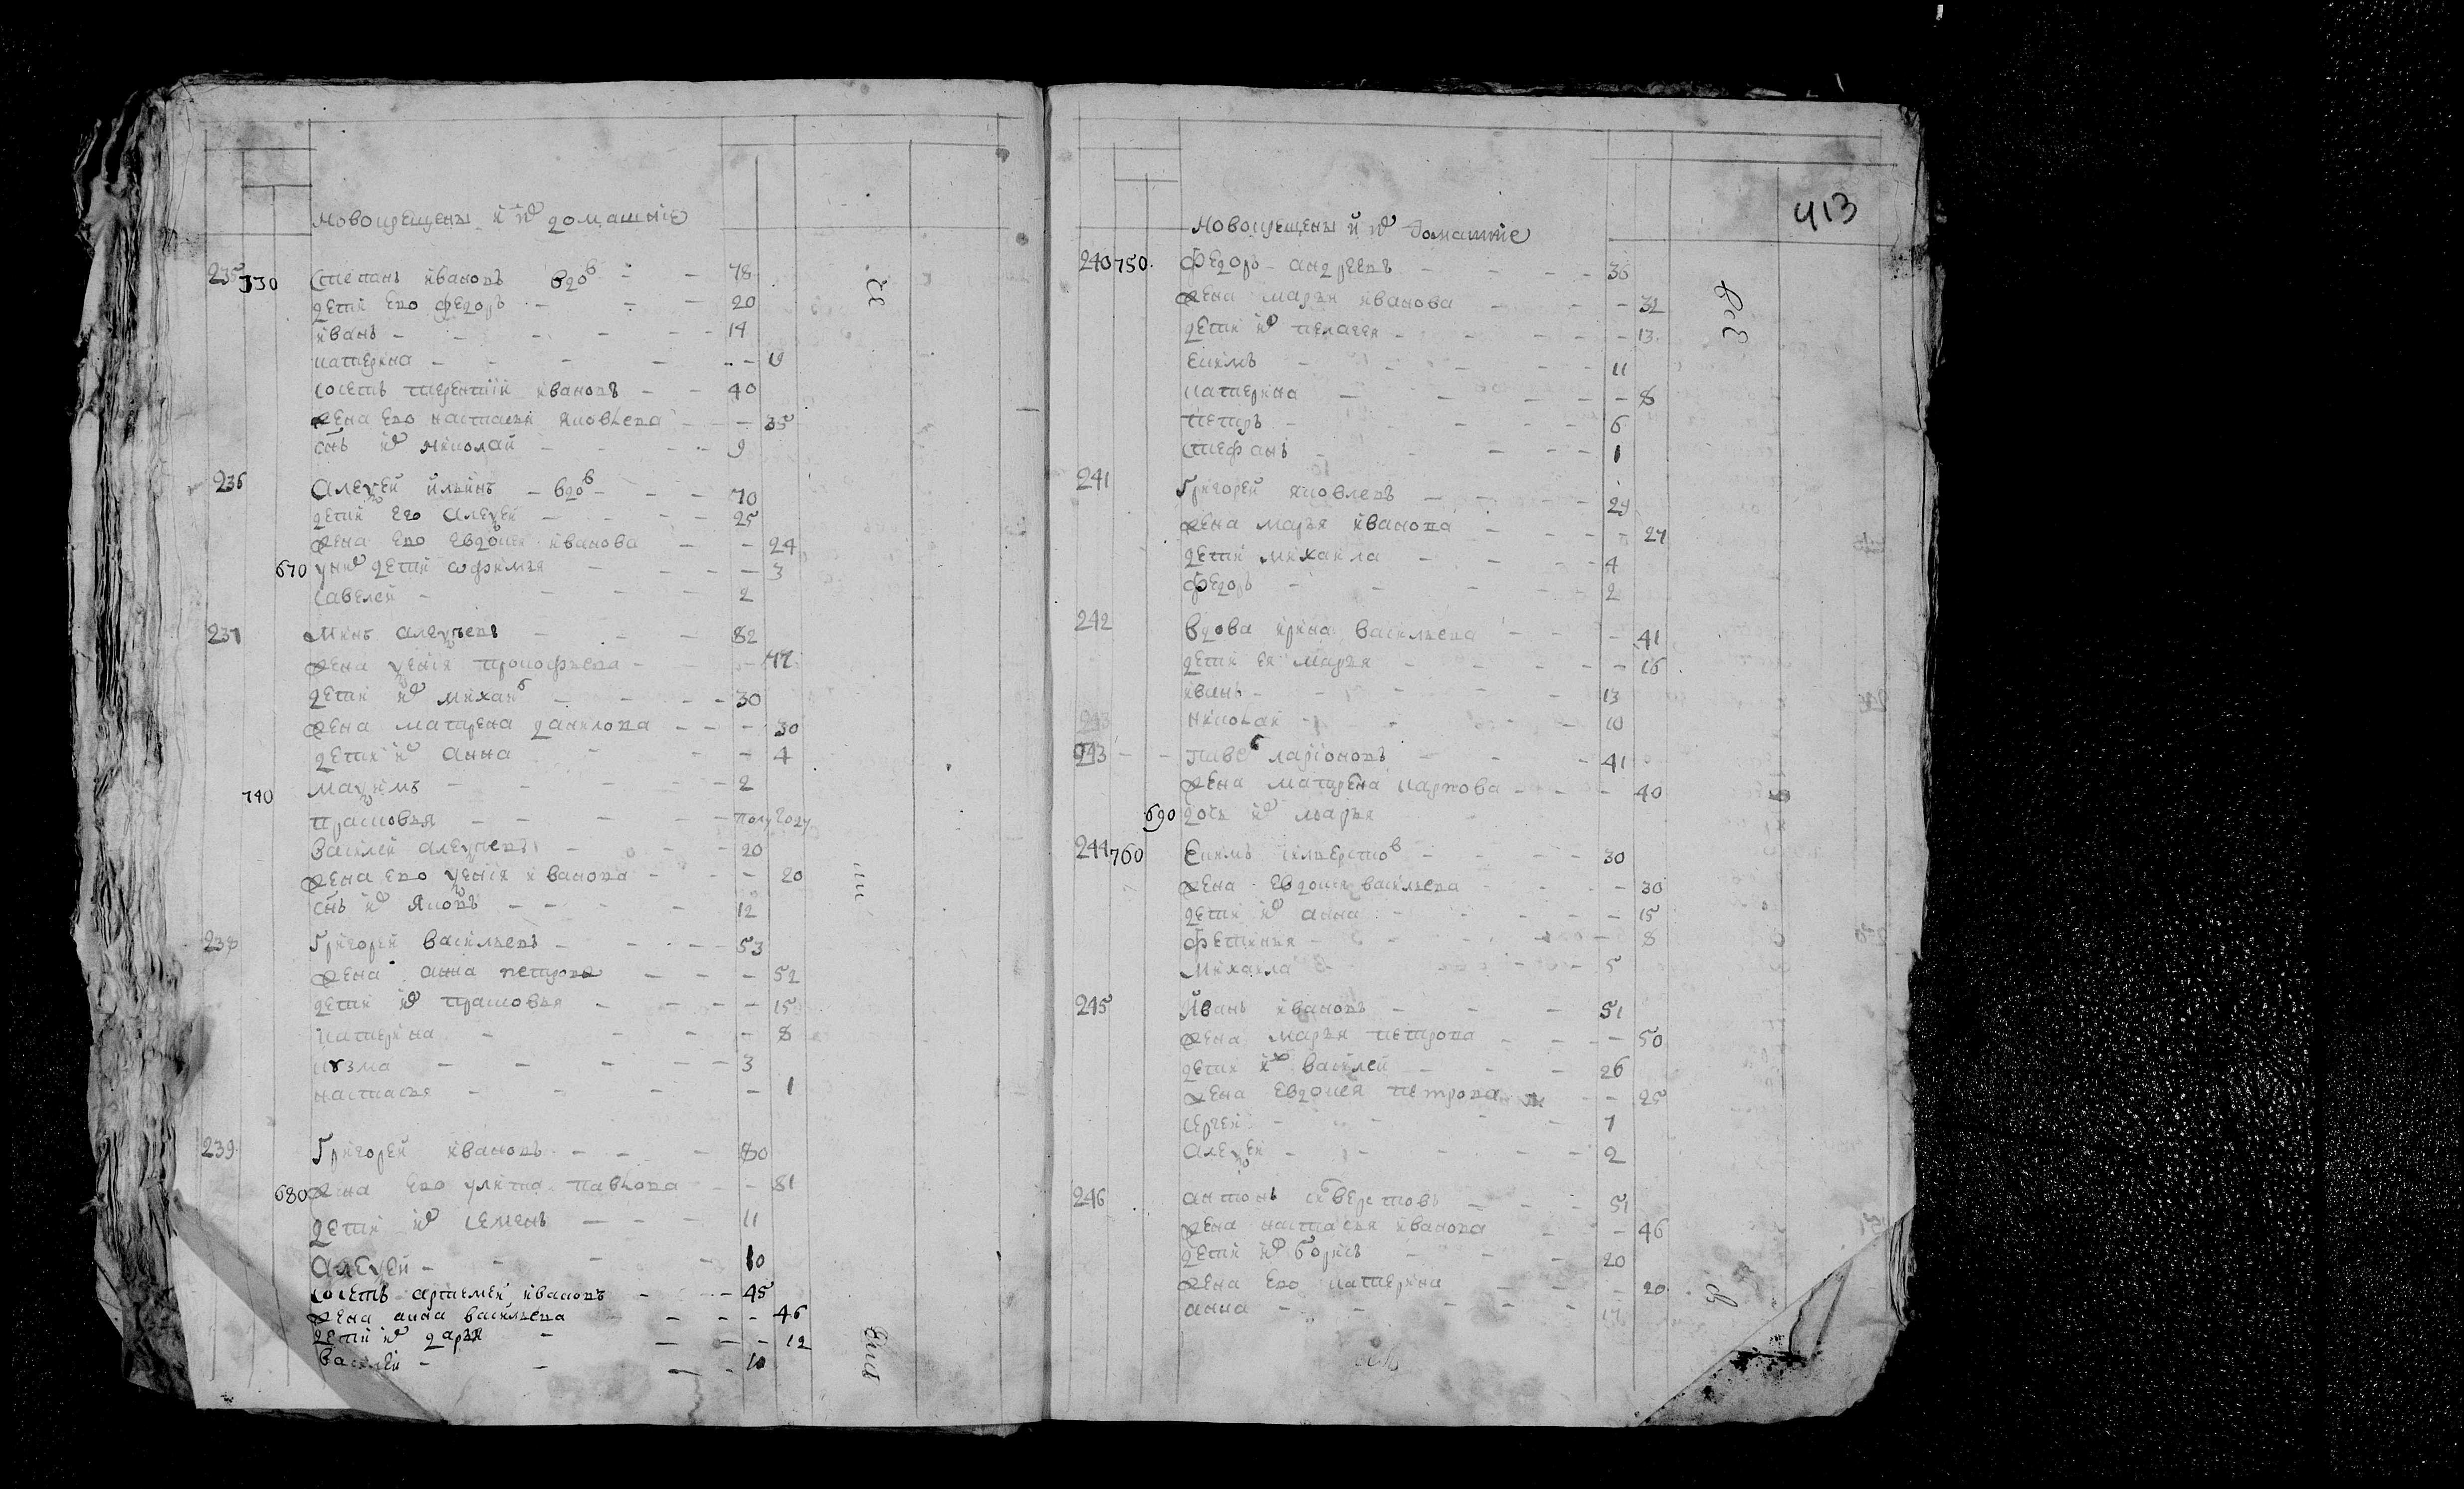 новокрещены и их домашние
235 730 Степанъ ивановъ вдов 78
дети ево федоръ 20
иванъ 14
катерина 19
соседъ терентий ивановъ 40
жена ево настасья яковлева 35
снъ их николай 9
236 Алексей ильинъ вдов 70
дети его алексей 25
жена ево евдокия иванова 24
670 у них дети афимья 3
савелей 2
237 Минъ алексеевъ 82
жена ксения прокофьева
дети их михаи 30
жена матрена данилова 30
дети их анна 4
740 максимъ 2
прасковья полугоду
василей алексеевъ 20
жена ево ксения иванова 20
снъ их яковъ 12
238 Григорей васильевъ 53
жена анна петрова 52
дети их прасковья 15
катерина 8
кузма 3
настасья 1
239 Григорей ивановъ 80
680 жена ево улита павлова 81
дети их семенъ 11
алексей 10
соседъ артемей ивановъ 45
жена анна васильева 46
дети их дарья 12
василей 10
413
новокрещены и их домашние
240 750 Федоръ андреевъ 36
жена марья иванова 32
дети их пелагея 13
екимъ 11
катерина 8
петръ 6
стефанъ 1
241 Григорей яковлевъ 29
жена марья иванова 27
дети михаила 4
федоръ 2
242 вдова ирина васильева 41
дети ея марья 16
иванъ 13
николай 10
243 ларионовъ 41
жена матрена карпова 40
690 дочь их марья
244 760 Екимъ силверстов 30
жена евдокия васильева 30
дети их анна 15
фетинья 8
михаила 5
245 Иванъ ивановъ 51
жена марья петрова 50
дети их василей 26
жена евдокея петрова 25
сергей
алексей 2
246 антонъ силверстовъ 51
жена настасья иванова 46
дети их борисъ 20
жена ево катерина 20
анна